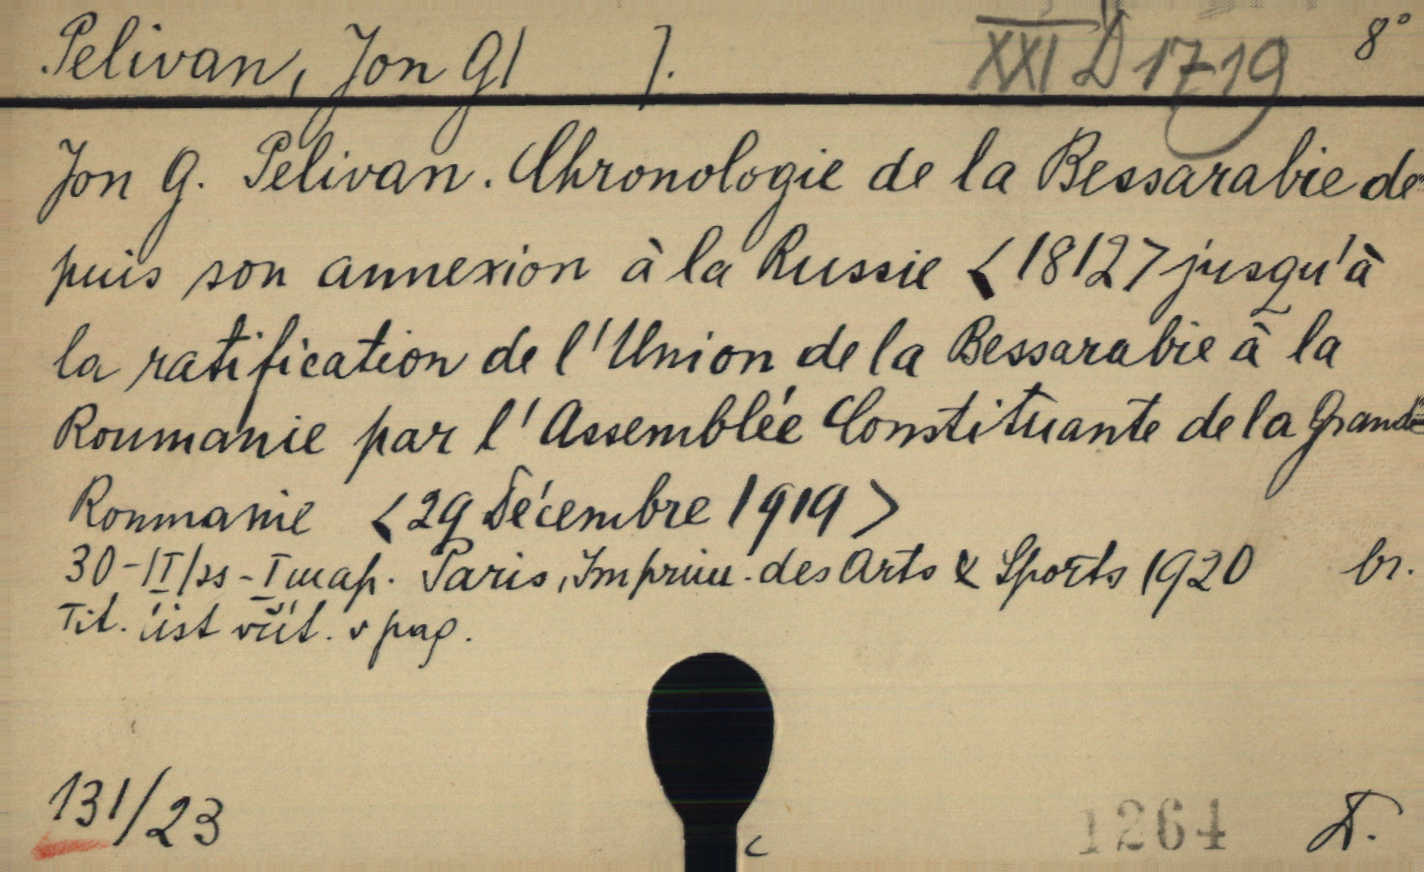 Pelivan, Jon G[ ]. XXI D 1719 8°
Jon G. Pelivan. Chronologie de la Bessarabie de-
puis son annexion à la Russie <1812> jusqu'à
la ratification de l'Union de la Bessarabie à la
Roumanie par l'Assemblée Constituante de la Grande
Roumanie <29 Décembre 1919>
30 map. Paris, Imprim. des Arts & Sports 1920 br.
Tit. pag.
131/23
1264 D.